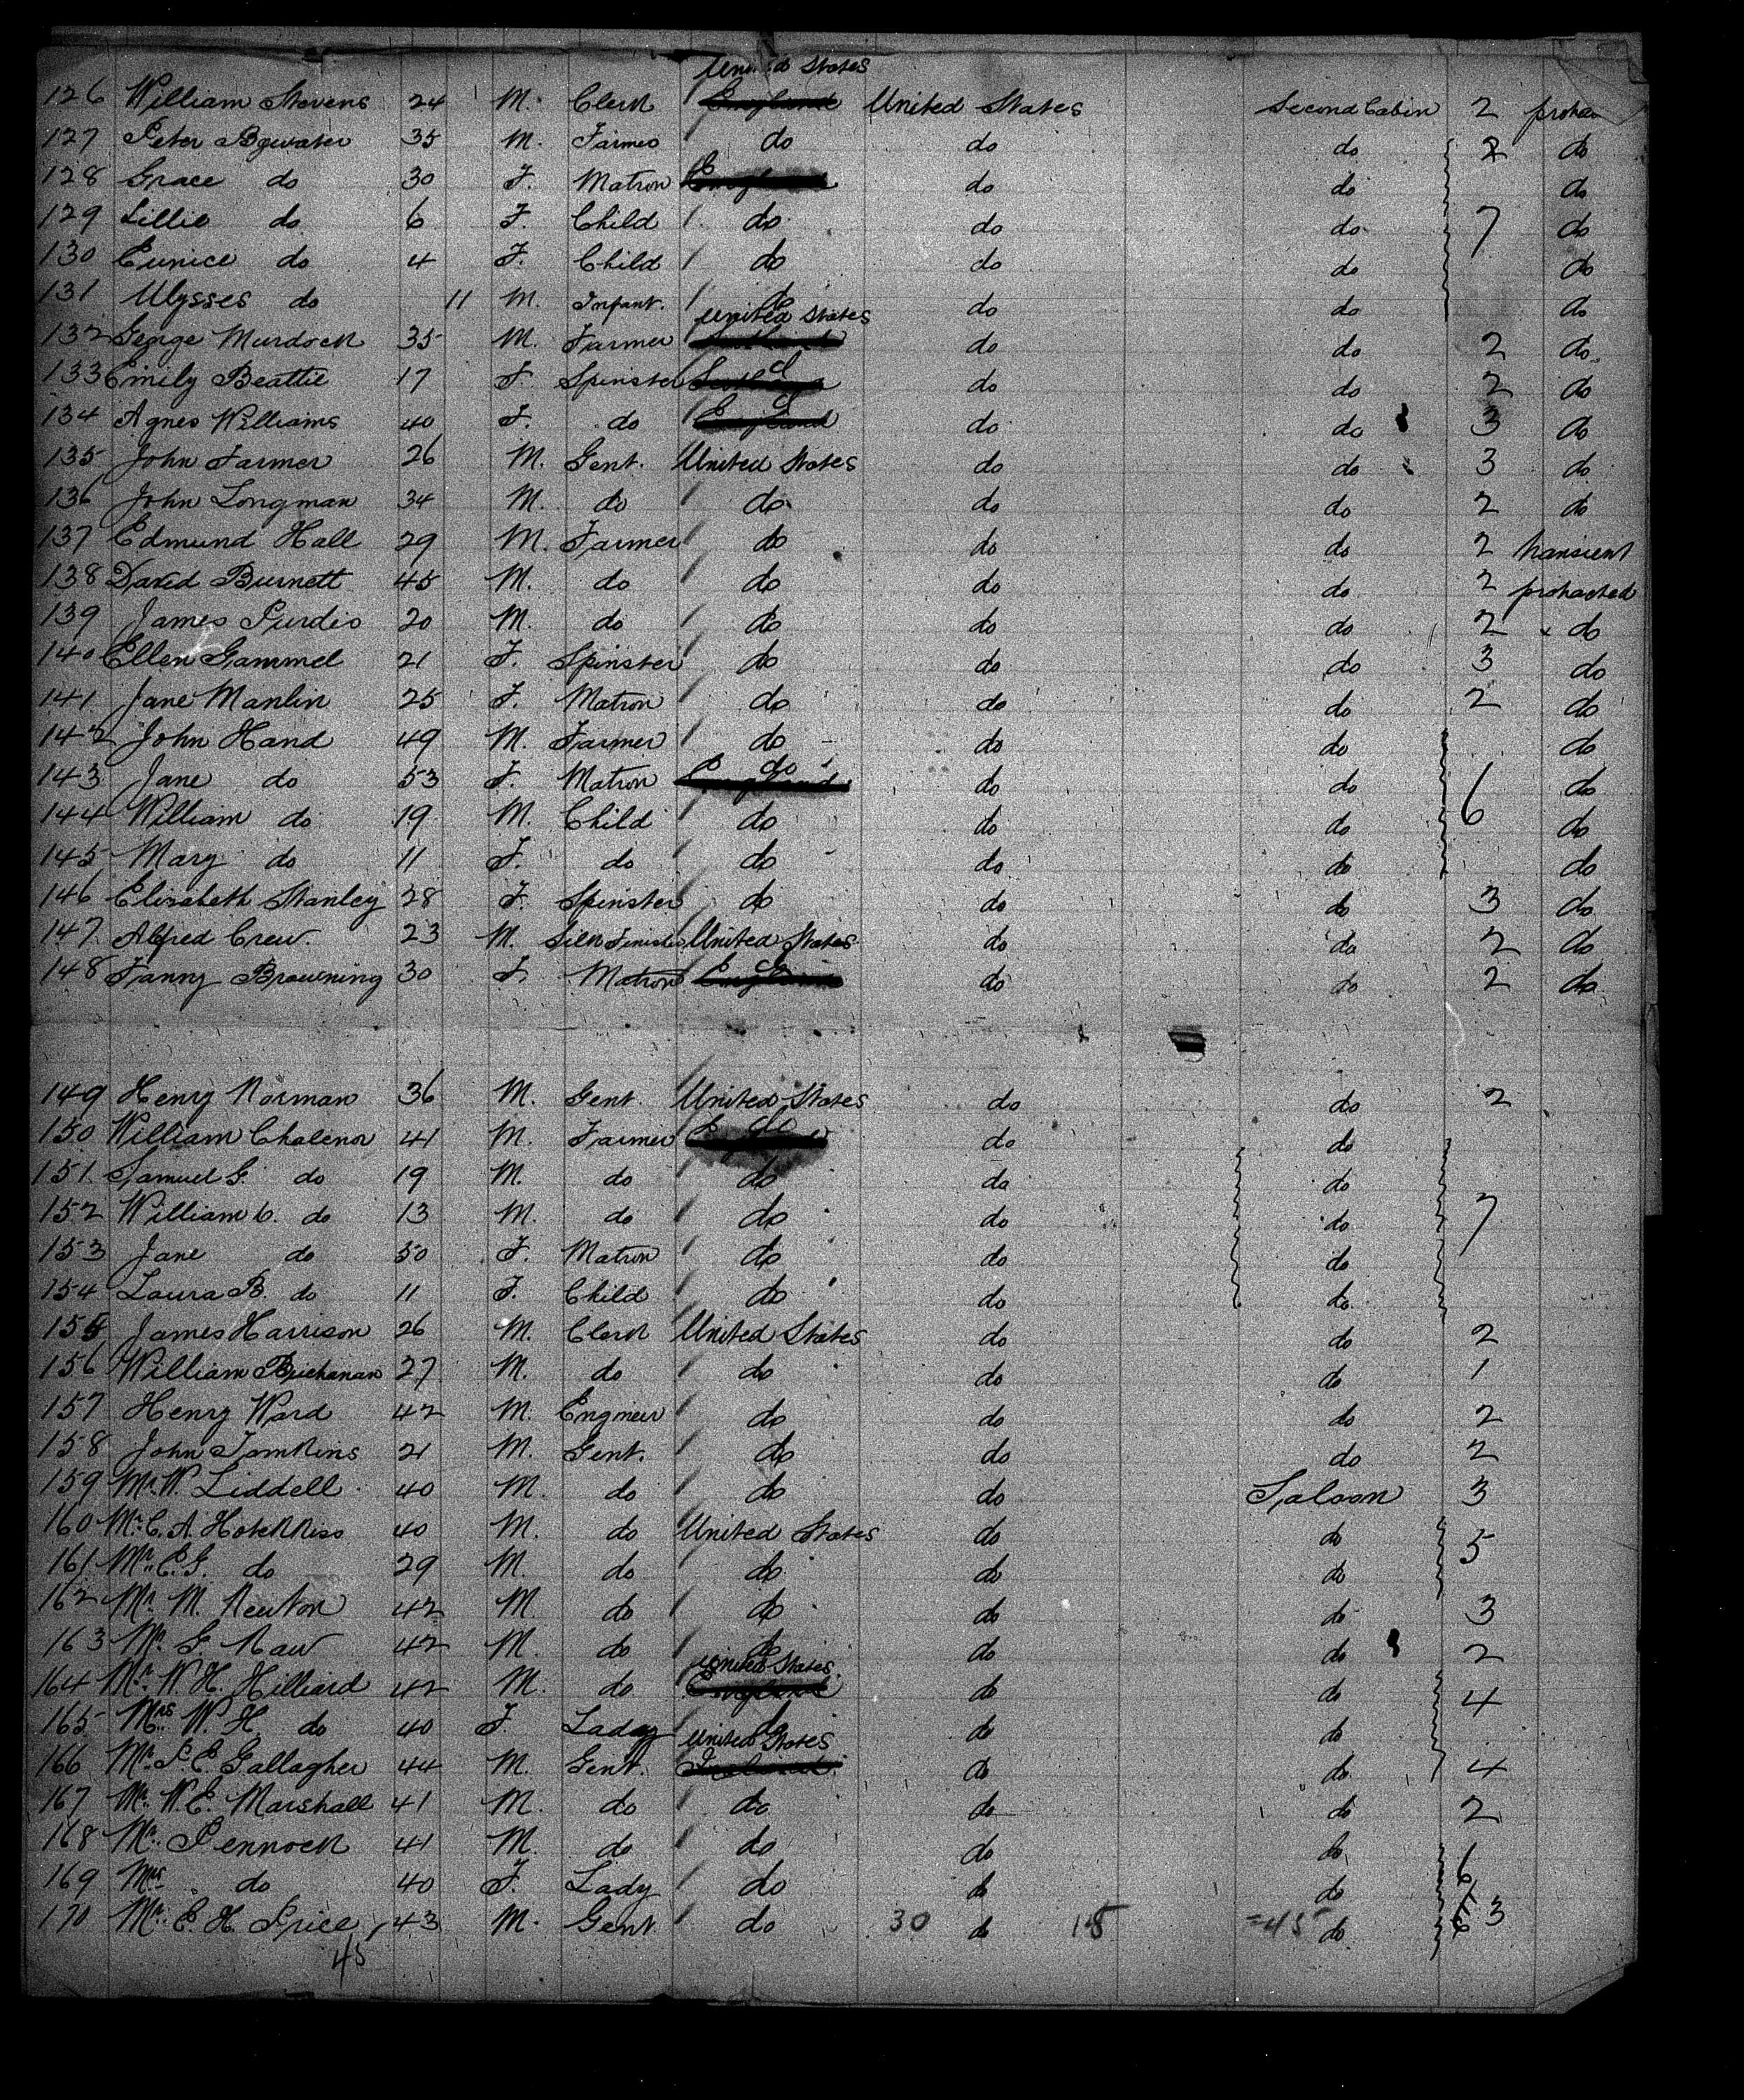 United States
126 William Stevens 24 M. Clerk England United States Second Cabin 2
127 Peter Bgwater 35 M. Farmer do do do 2 do
128 Grace do 30 F. Matron England do do do
129 Lillie do 6 F. Child do do do 7 do
130 Eunice do 4 F. Child do do do do
131 Ulysses do 11 M. Infant. do do do do
United States
132 George Murdock 35 M. Farmer do do 2 do
133 Emily Beattie 17 F. Spinster Scotland do do do 2 do
134 Agnes Williams 40 F. do England do do do 3 do
135 John Farmer 26 M. Gent. United States do do 3 do
136 John Longman 34 M. do do do do 2 do
137 Edmund Hall 29 M. Farmer do do do 2 transient
138 David Burnett 45 M. do do do do 2 protracted
139 James Purdie 20 M. do do do do 2 x do
140 Ellen Gammel 21 F. Spinster do do do 3 do
141 Jane Manlin 25 F. Matron do do do 2 do
142 John Hand 49 M. Farmer do do do do
143 Jane do 53 F. Matron England do do do 6 do
144 William do 19 M. Child do do do do
145 Mary do 11 F. do do do do do
146 Elizabeth Stanley 28 F. Spinster do do do 3 do
147 Alfred Crew. 23 M. Silk Finisher United States do do 2 do
148 Fanny Browning 30 F. Matron England do do do 2 do
149 Henry Norman 36 M. Gent. United States do do 2
150 William Chalenor 41 M. Farmer do do do
151 Samuel G. do 19 M. do do do do
152 William C. do 13 M. do do do do 7
153 Jane do 50 F. Matron do do do
154 Laura B. do 11 F. Child do do do
155 James Harrison 26 M. Clerk United States do do 2
156 William Buchanan 27 M. do do do do 1
157 Henry Ward 42 M. Engineer do do do 2
158 John Tomkins 21 M. Gent. do do do 2
159 Mr. W. Liddell 40 M. do do do Saloon 3
160 Mr. C. A. Hotchkiss 40 M. do United States do do 5
161 Mr. E. G. do 29 M. do do do do
162 Mr. M. Newton 42 M. do do do do 3
163 Mr. G. Naw 42 M. do do do do 2
United States
164 Mr. W. H. Hilliard 42 M. do England do do 4
165 Mrs. W. H. do 40 F. Lady do do do
United States
166 Mr. P. E. Gallagher 44 M. Gent. Ireland do do 4
167 Mr. W. E. Marshall 41 M. do do do do 2
168 Mr. Pennock 41 M. do do do do
169 Mrs. do 40 F. Lady do do do 6
170 Mr. E. H. Price 43 M. Gent do 30 do 15 =45 do 3
45